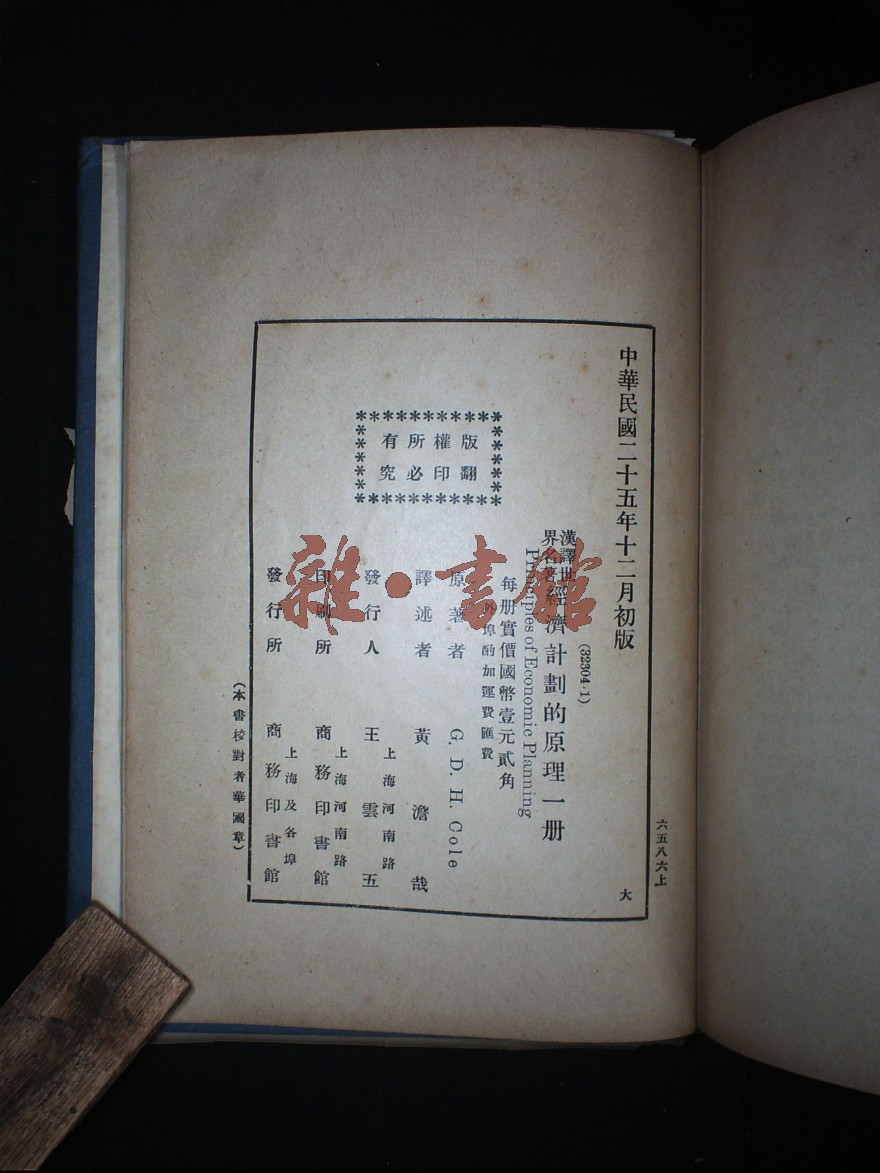 中華民國二十五年十二月初版
(32304·1)
漢譯世界名著 經濟計劃的原理一册
Principles of Economic Planning
每册實價國幣壹元貳角
外埠酌加運費匯費
版權所有
翻印必究
原著者 G. D. H. Cole
譯述者 黃澹哉
發行人 王雲五
上海河南路
印刷所 商務印書館
上海河南路
發行所 商務印書館
上海及各埠
(本書校對者華國章)
六五八六上
大
雜·書館